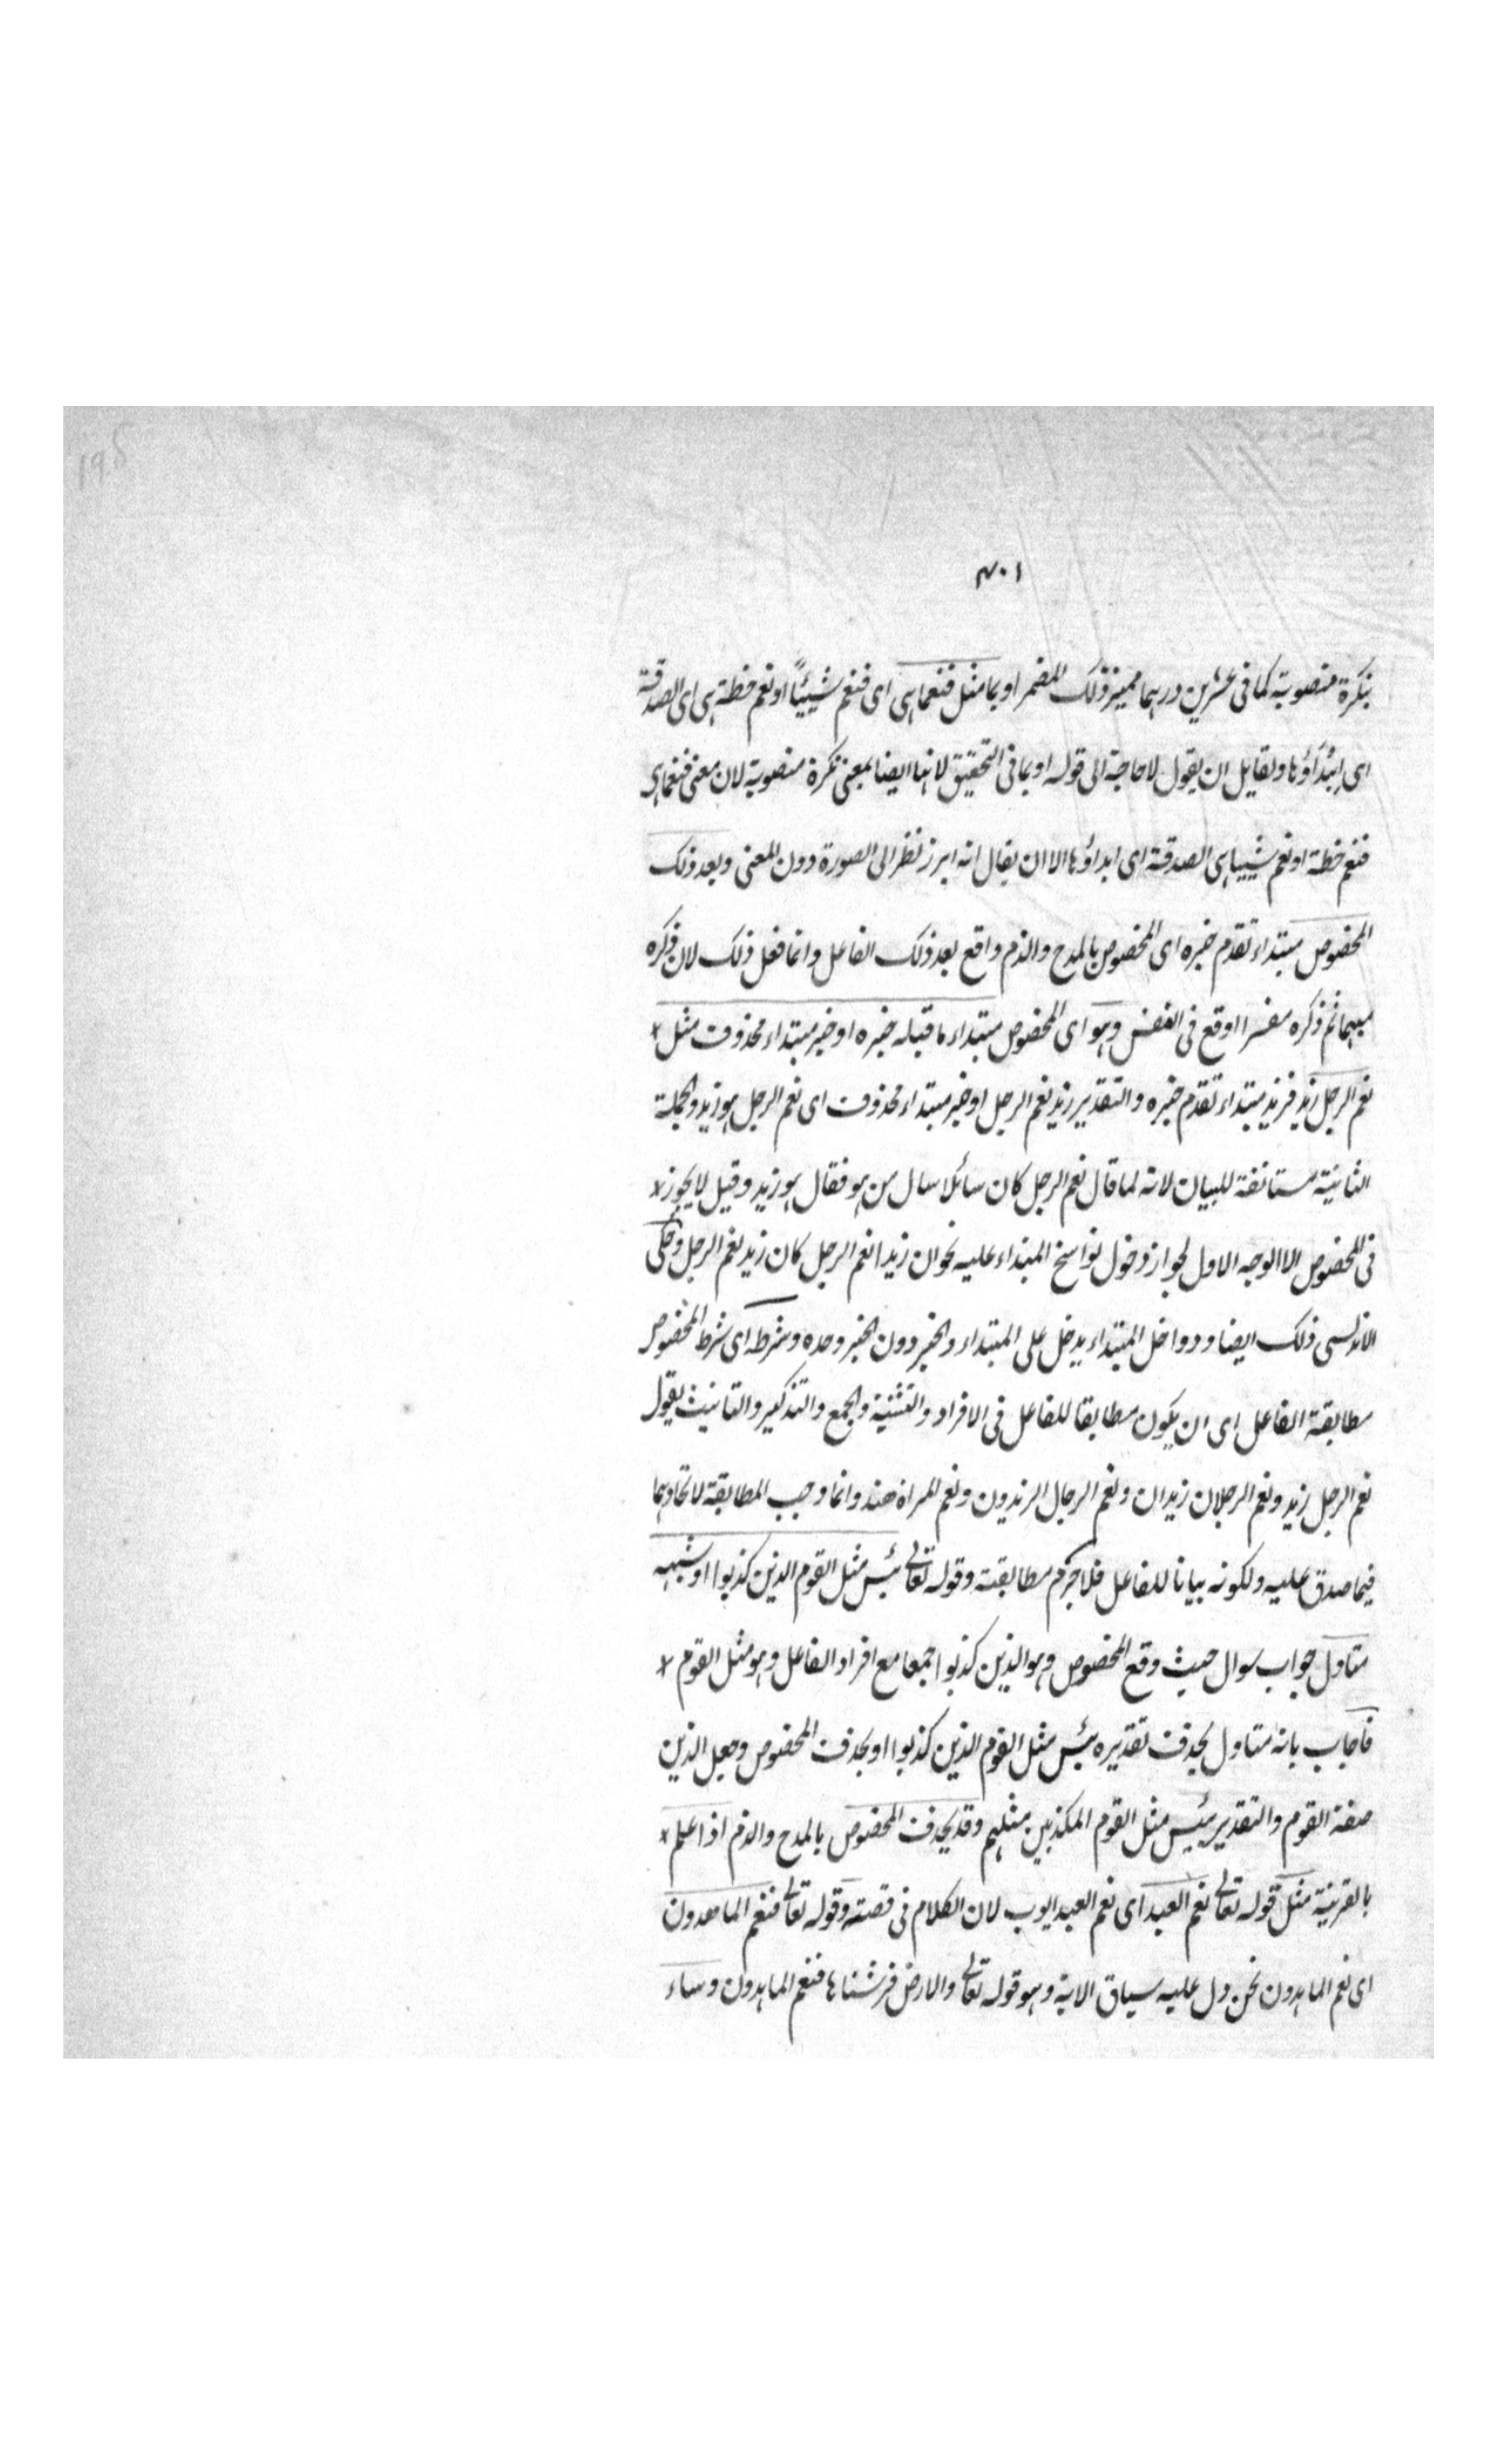 ۴۰۱
بنكرة منصوبة كما فى عشرين درهما مميز ذلك المضمر او بما مثل فنعما هى اى فنعم شيئيًا او نعم خطة هى اى الصدقة
اى ابتداؤها ولقايل ان يقول لا حاجة الى قوله او بما فى التحقيق لانها ايضا بمعنى نكرة منصوبة لان معنى فنعما هى
فنعم خطة او نعم شييا هى الصدقة اى ابداؤها الا ان يقال انه ابرز نظرا الى الصورة دون المعنى وبعد ذلك
المخصوص مبتداء تقدم خبره اى المخصوص بالمدح والذم واقع بعد ذلك الفاعل وانما فعل ذلك لان ذكره
مبهما ثم ذكره مفسرا اوقع فى النفس وهو اى المخصوص مبتداء ما قبله خبره او خبر مبتداء محذوف مثل
نعم الرجل زيد فزيد مبتداء تقدم خبره والتقدير زيد نعم الرجل او خبر مبتداء محذوف اى نعم الرجل هو زيد والجملة
الثانية مستانفة للبيان لانه لما قال نعم الرجل كان سائلا سال من هو فقال هو زيد وقيل لا يجوز
فى المخصوص الا الوجه الاول لجواز دخول نواسخ المبتداء عليه نحو ان زيدا نعم الرجل كان زيد نعم الرجل وحكى
الاندلسى ذلك ايضا ودواخل المبتداء يدخل على المبتداء والخبر دون الخبر وحده وشرطه اى شرط المخصوص
مطابقة الفاعل اى ان يكون مطابقا للفاعل فى الافراد والتثنية والجمع والتذكير والتانيث يقول
نعم الرجل زيد ونعم الرجلان زيدان ونعم الرجال الزيدون ونعم المراة هند وانما وجب المطابقة لاتحادهما
فيما صدق عليه ولكونه بيانا للفاعل فلا جرم مطابقته وقوله تعالى بئس مثل القوم الذين كذبوا او شبهه
متاول جواب سوال حيث وقع المخصوص وهو الذين كذبوا جمعا مع افراد الفاعل وهو مثل القوم
فاجاب بانه متاول بحذف تقديره بئس مثل القوم الذين كذبوا او بحذف المخصوص وجعل الذين
صفة القوم والتقدير بئيس مثل القوم المكذبين مثلهم وقد يحذف المخصوص بالمدح والذم اذا علم
بالقرينة مثل قوله تعالى نعم العبد اى نعم العبد ايوب لان الكلام فى قصته وقوله تعالى فنعم الماهدون
اى نعم الماهدون نحن دل عليه سياق الاية وهو قوله تعالى والارض فرشناها فنعم الماهدون وساء